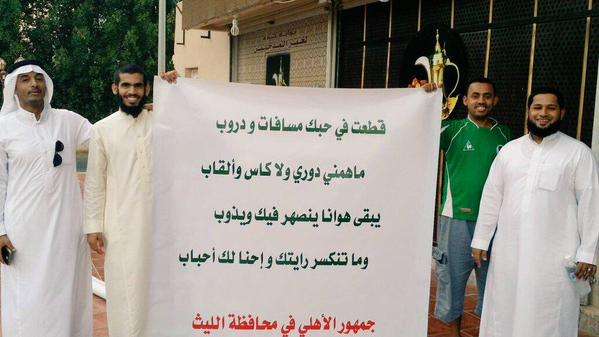 قطعت في حبك مسافات و دروب
ماهمني دوري ولا كاس وألقاب
يبقى هوانا ينصهر فيك ويذوب
وما تنكسر رايتك و إحنا لك أحباب
جمهور الأهلي في محافظة الليث